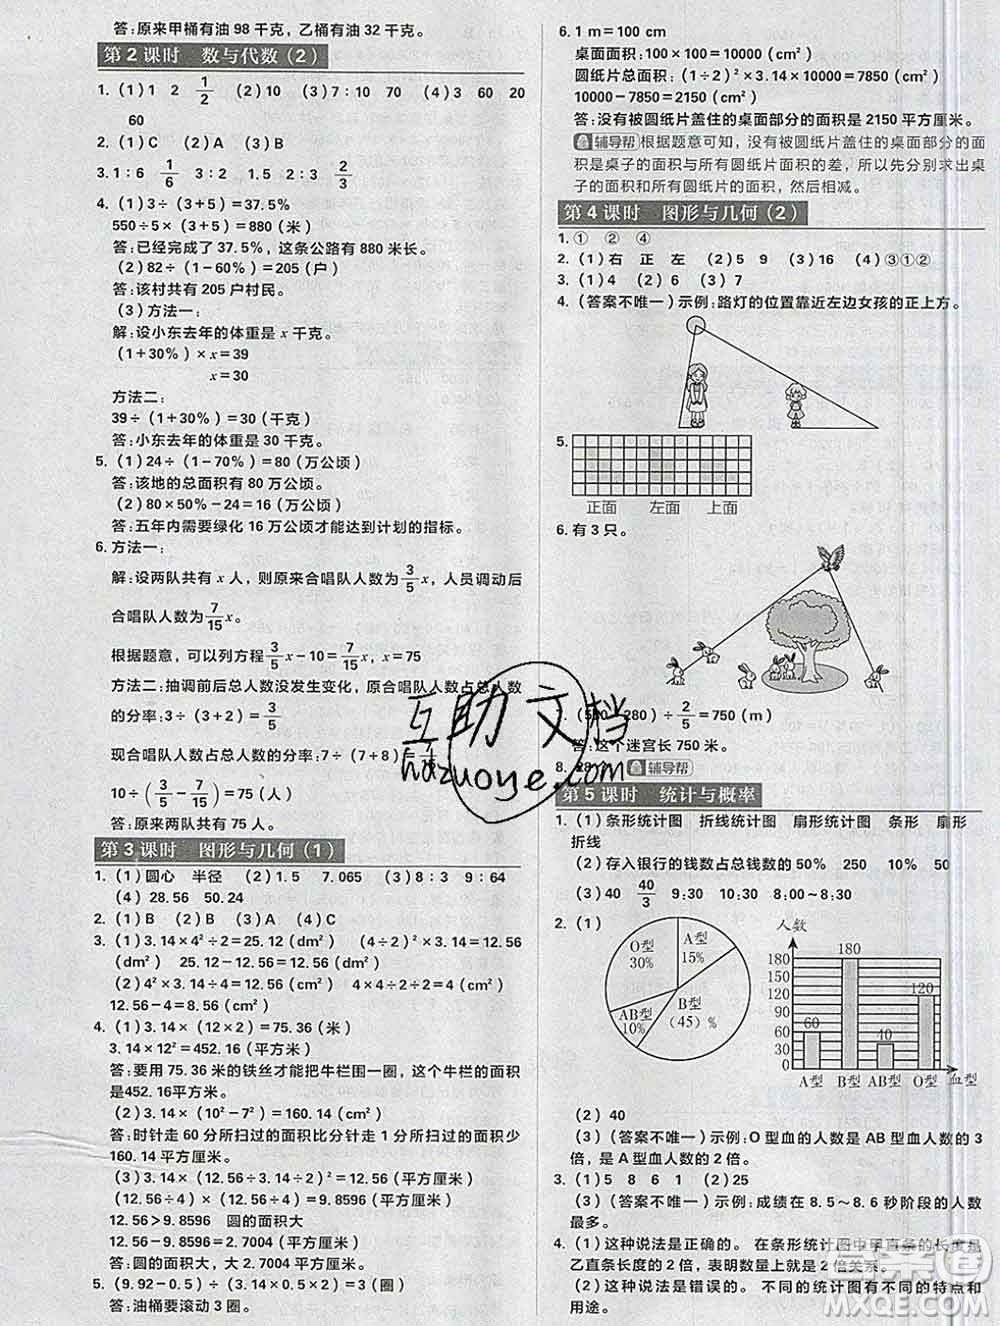 答:原来甲桶有油 98 千克,乙桶有油 32 千克。
第 2 课时 数与代数(2)
1. (1)1 2 1/2 (2)10 (3)7:10 70 (4)3 60 20
60
2. (1)C (2)A (3)B
3. 1:6 1/6 3:2 1.5 2:3 2/3
4. (1)3÷(3+5)=37.5%
550÷5×(3+5)=880(米)
答:已经完成了 37.5%,这条公路有 880 米长。
(2)82÷(1-60%)=205(户)
答:该村共有 205 户村民。
(3)方法一:
解:设小东去年的体重是 x 千克。
(1+30%)×x=39
x=30
方法二:
39÷(1+30%)=30(千克)
答:小东去年的体重是 30 千克。
5. (1)24÷(1-70%)=80(万公顷)
答:该地的总面积有 80 万公顷。
(2)80×50%-24=16(万公顷)
答:五年内需要绿化 16 万公顷才能达到计划的指标。
6. 方法一:
解:设两队共有 x 人,则原来合唱队人数为 3/5 x,人员调动后
合唱队人数为 7/15 x。
根据题意,可以列方程 3/5 x-10=7/15 x,x=75
方法二:抽调前后总人数没发生变化,原合唱队人数占总人数
的分率:3÷(3+2)=3/5
现合唱队人数占总人数的分率:7÷(7+8)=
10÷(3/5-7/15)=75(人)
答:原来两队共有 75 人。
第 3 课时 图形与几何(1)
1. (1)圆心 半径 (2)1.5 7.065 (3)8:3 9:64
(4)28.56 50.24
2. (1)B (2)B (3)A (4)C
3. (1)3.14×4²÷2=25.12(dm²) (4÷2)²×3.14=12.56
(dm²) 25.12-12.56=12.56(dm²)
(2)(4÷2)²×3.14=12.56(cm²) 4×4÷2÷2=4(cm²)
12.56-4=8.56(cm²)
4. (1)3.14×(12×2)=75.36(米)
3.14×12²=452.16(平方米)
答:要用 75.36 米的铁丝才能把牛栏围一圈,这个牛栏的面积
是452.16平方米。
(2)3.14×(10²-7²)=160.14(cm²)
答:时针走 60 分所扫过的面积比分针走 1 分所扫过的面积少
160.14 平方厘米。
(3)3.14×(12.56÷3.14÷2)²=12.56(平方米)
(12.56÷4)×(12.56÷4)=9.8596(平方米)
12.56>9.8596 圆的面积大
12.56-9.8596=2.7004(平方米)
答:圆的面积大,大 2.7004 平方米。
5. (9.92-0.5)÷(3.14×1)=3(圈)
答:油桶要滚动 3 圈。
6. 1 m=100 cm
桌面面积:100×100=10000(cm²)
圆纸片总面积:(1÷2)²×3.14×10000=7850(cm²)
10000-7850=2150(cm²)
答:没有被圆纸片盖住的桌面部分的面积是 2150 平方厘米。
辅导帮 根据题意可知,没有被圆纸片盖住的桌面部分的面
积是桌子的面积与所有圆纸片面积的差,所以先分别求出桌
子的面积和所有圆纸片的面积,然后相减。
第 4 课时 图形与几何(2)
1. ① ② ④
2. (1)右 正 左 (2)5 9 (3)16 (4)③①②
3. (1)4 (2)6 (3)7
4. (答案不唯一)示例:路灯的位置靠近左边女孩的正上方。
5.
正面 左面 上面
6. 有 3 只。
7. 280)÷2/5=750(m)
答:这个迷宫长 750 米。
8. 辅导帮
第 5 课时 统计与概率
1. (1)条形统计图 折线统计图 扇形统计图 条形 扇形
折线
(2)存入银行的钱数占总钱数的 50% 250 10% 50
(3)40 40/3 9:30 10:00 8:00~8:30
2. (1)
O型
30%
A型
15%
AB型
10%
B型
(45)%
人数
180
150
120
90
60
30
0
60
180
40
120
A型 B型 AB型 O型 血型
(2)40
(3)(答案不唯一)示例:O 型血的人数是 AB 型血人数的 3
倍,是 A 型血人数的 2 倍。
3. (1)5 8 6 1 (2)25
(3)(答案不唯一)示例:成绩在 8.5~8.6 秒阶段的人数
最多。
4. (1)这种说法是正确的。 在条形统计图中甲直条的长度是
乙直条长度的 2 倍,表明数量上就是 2 倍关系。
(2)这种说法是错误的。 不同的统计图有不同的特点和
用途。
互助文档
hdzuoye.com
答案圈
MXQE.COM